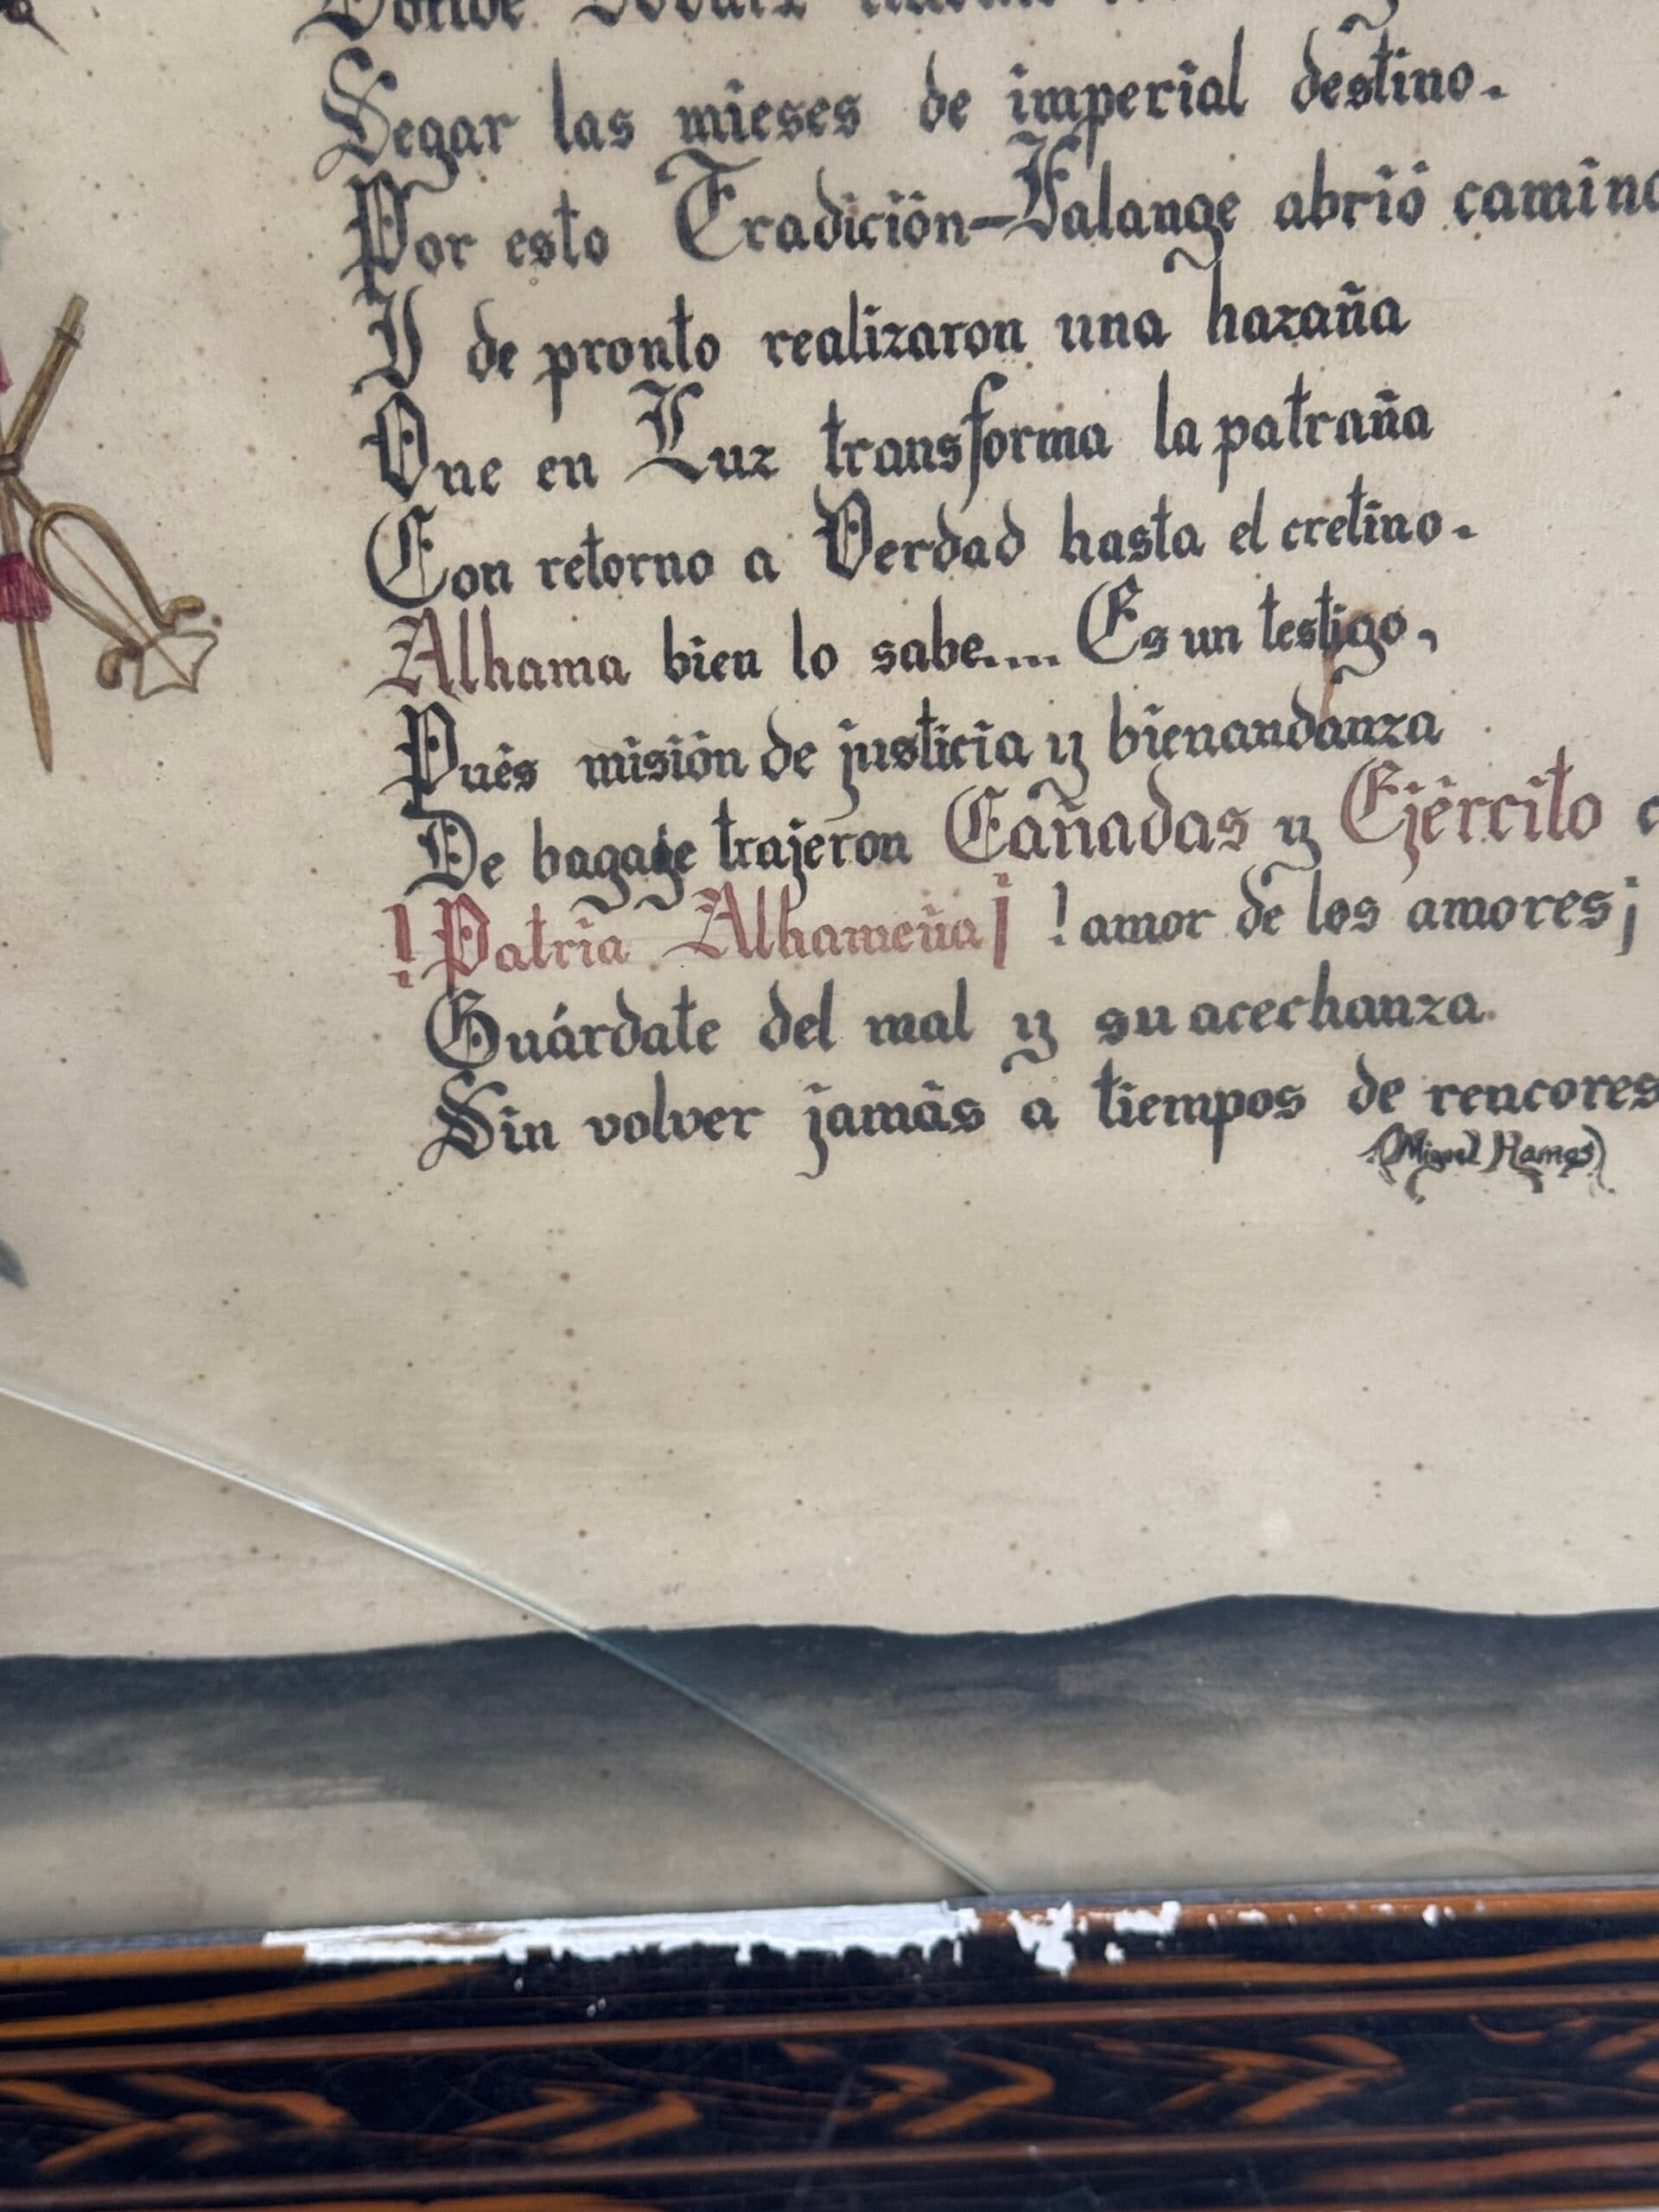 Segar las mieses de imperial destino.
Por esto Tradición-Falange abrió camino
Y de pronto realizaron una hazaña
Que en Luz transforma la patraña
Con retorno a Verdad hasta el cretino.
Alhama bien lo sabe.... Es un testigo,
Pués misión de justicia y bienandanza
De bagage trajeron Cañadas y Ejército
!Patria Alhameña¡ !amor de los amores¡
Guárdate del mal y su acechanza.
Sin volver jamás a tiempos de rencores
(Miguel Ramos)